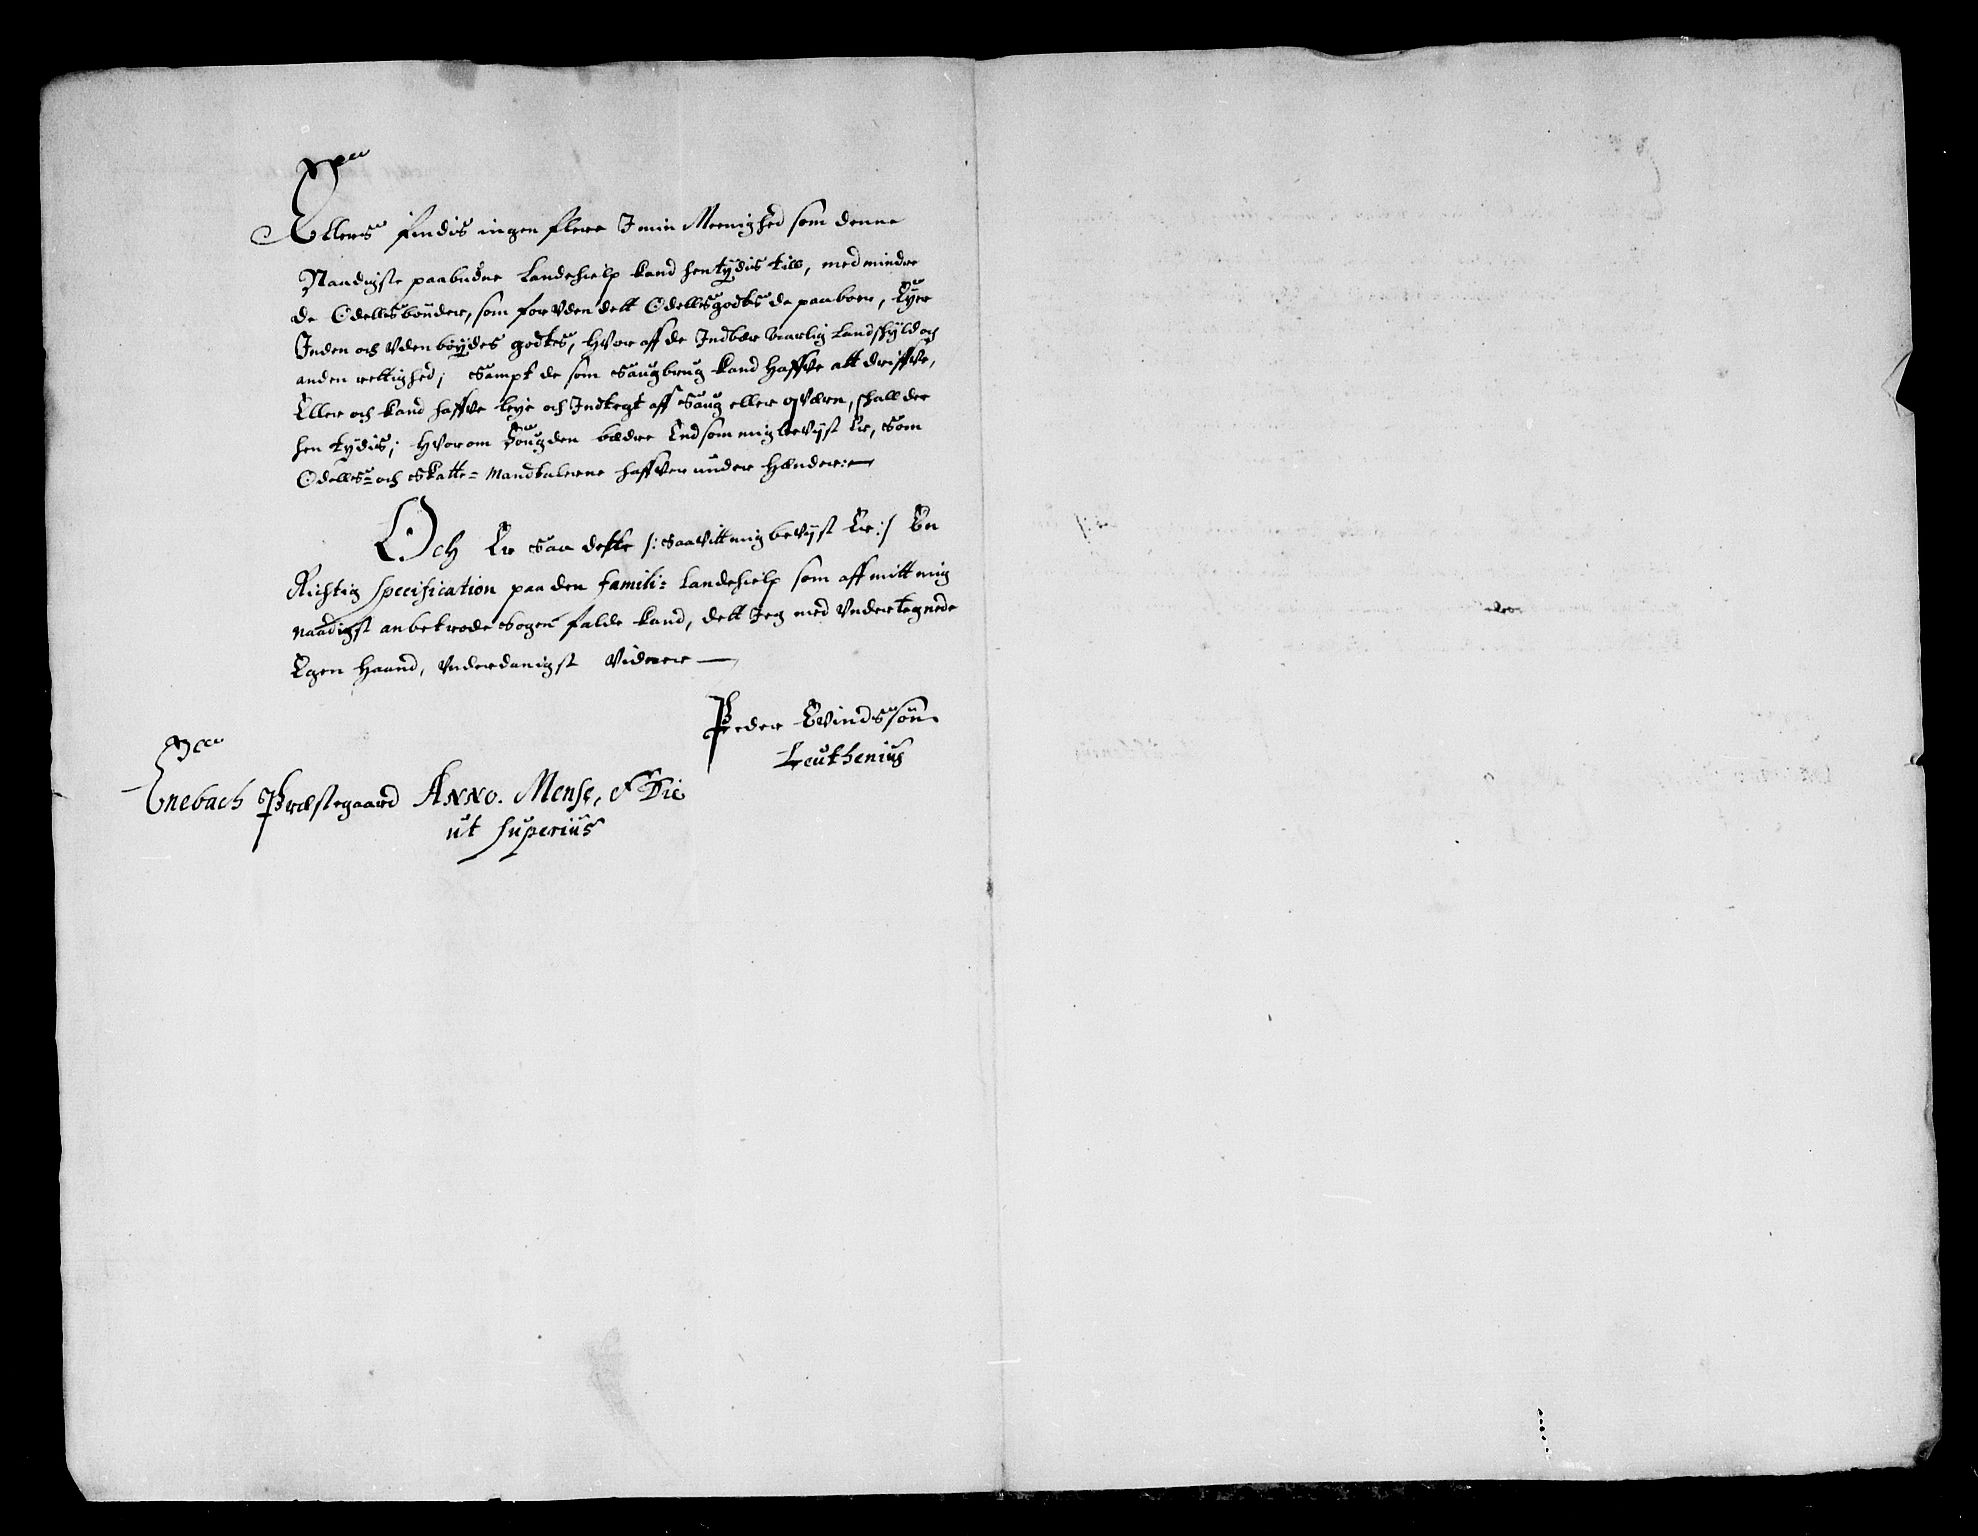 Ellers findis ingen flere J min Meenighed som denne
Naadigste paabudne Landehielp kand hentydis till, med mindre
de Odellsbønder, som for uden dett Odellsgodts de paaboer, Eyer
Jnden och uden bøydes godtes, hvor aff de Jndbær Aarlig Landskyld och
anden rettighed; Sampt de som Saugbrug kand haffve att driffve,
Eller och kand haffve leye och Jndtegt aff Saug eller qværn, skall der
hen tydis; hvorom fougden bædre End som mig bevijst Er, som
Odells- och Skatte- Mandtalerne haffver under hænder:
Och Er saa dette /: saavitt mig bevijst Er :/ En
Richtig Specification paa den Famili- Landehielp som aff mitt mig
naadigst anbetrode Sogen falde kand, dett Jeg med Undertegnede
Egen Haand, Underdanigst Vidner
Peder Evindssøn
Leuthenius
Enebach Præstegaard Anno. Mense, & Die
ut superius